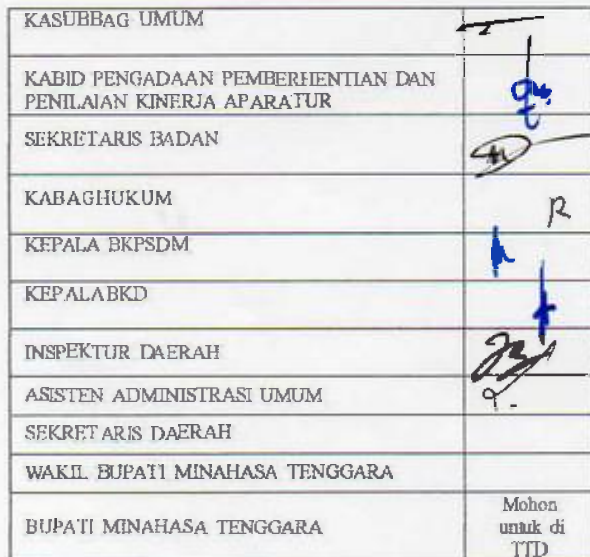 KASUBBAG UMUM
KABID PENGADAAN PEMBERHENTIAN DAN
PENILAIAN KINERJA APARATUR
SEKRETARIS BADAN
KABAGHUKUM
KEPALA BKPSDM
KEPALABKD
INSPEKTUR DAERAH
ASISTEN ADMINISTRASI UMUM
SEKRETARIS DAERAH
WAKIL BUPATI MINAHASA TENGGARA
BUPATI MINAHASA TENGGARA
Mohon
untuk di
TTD